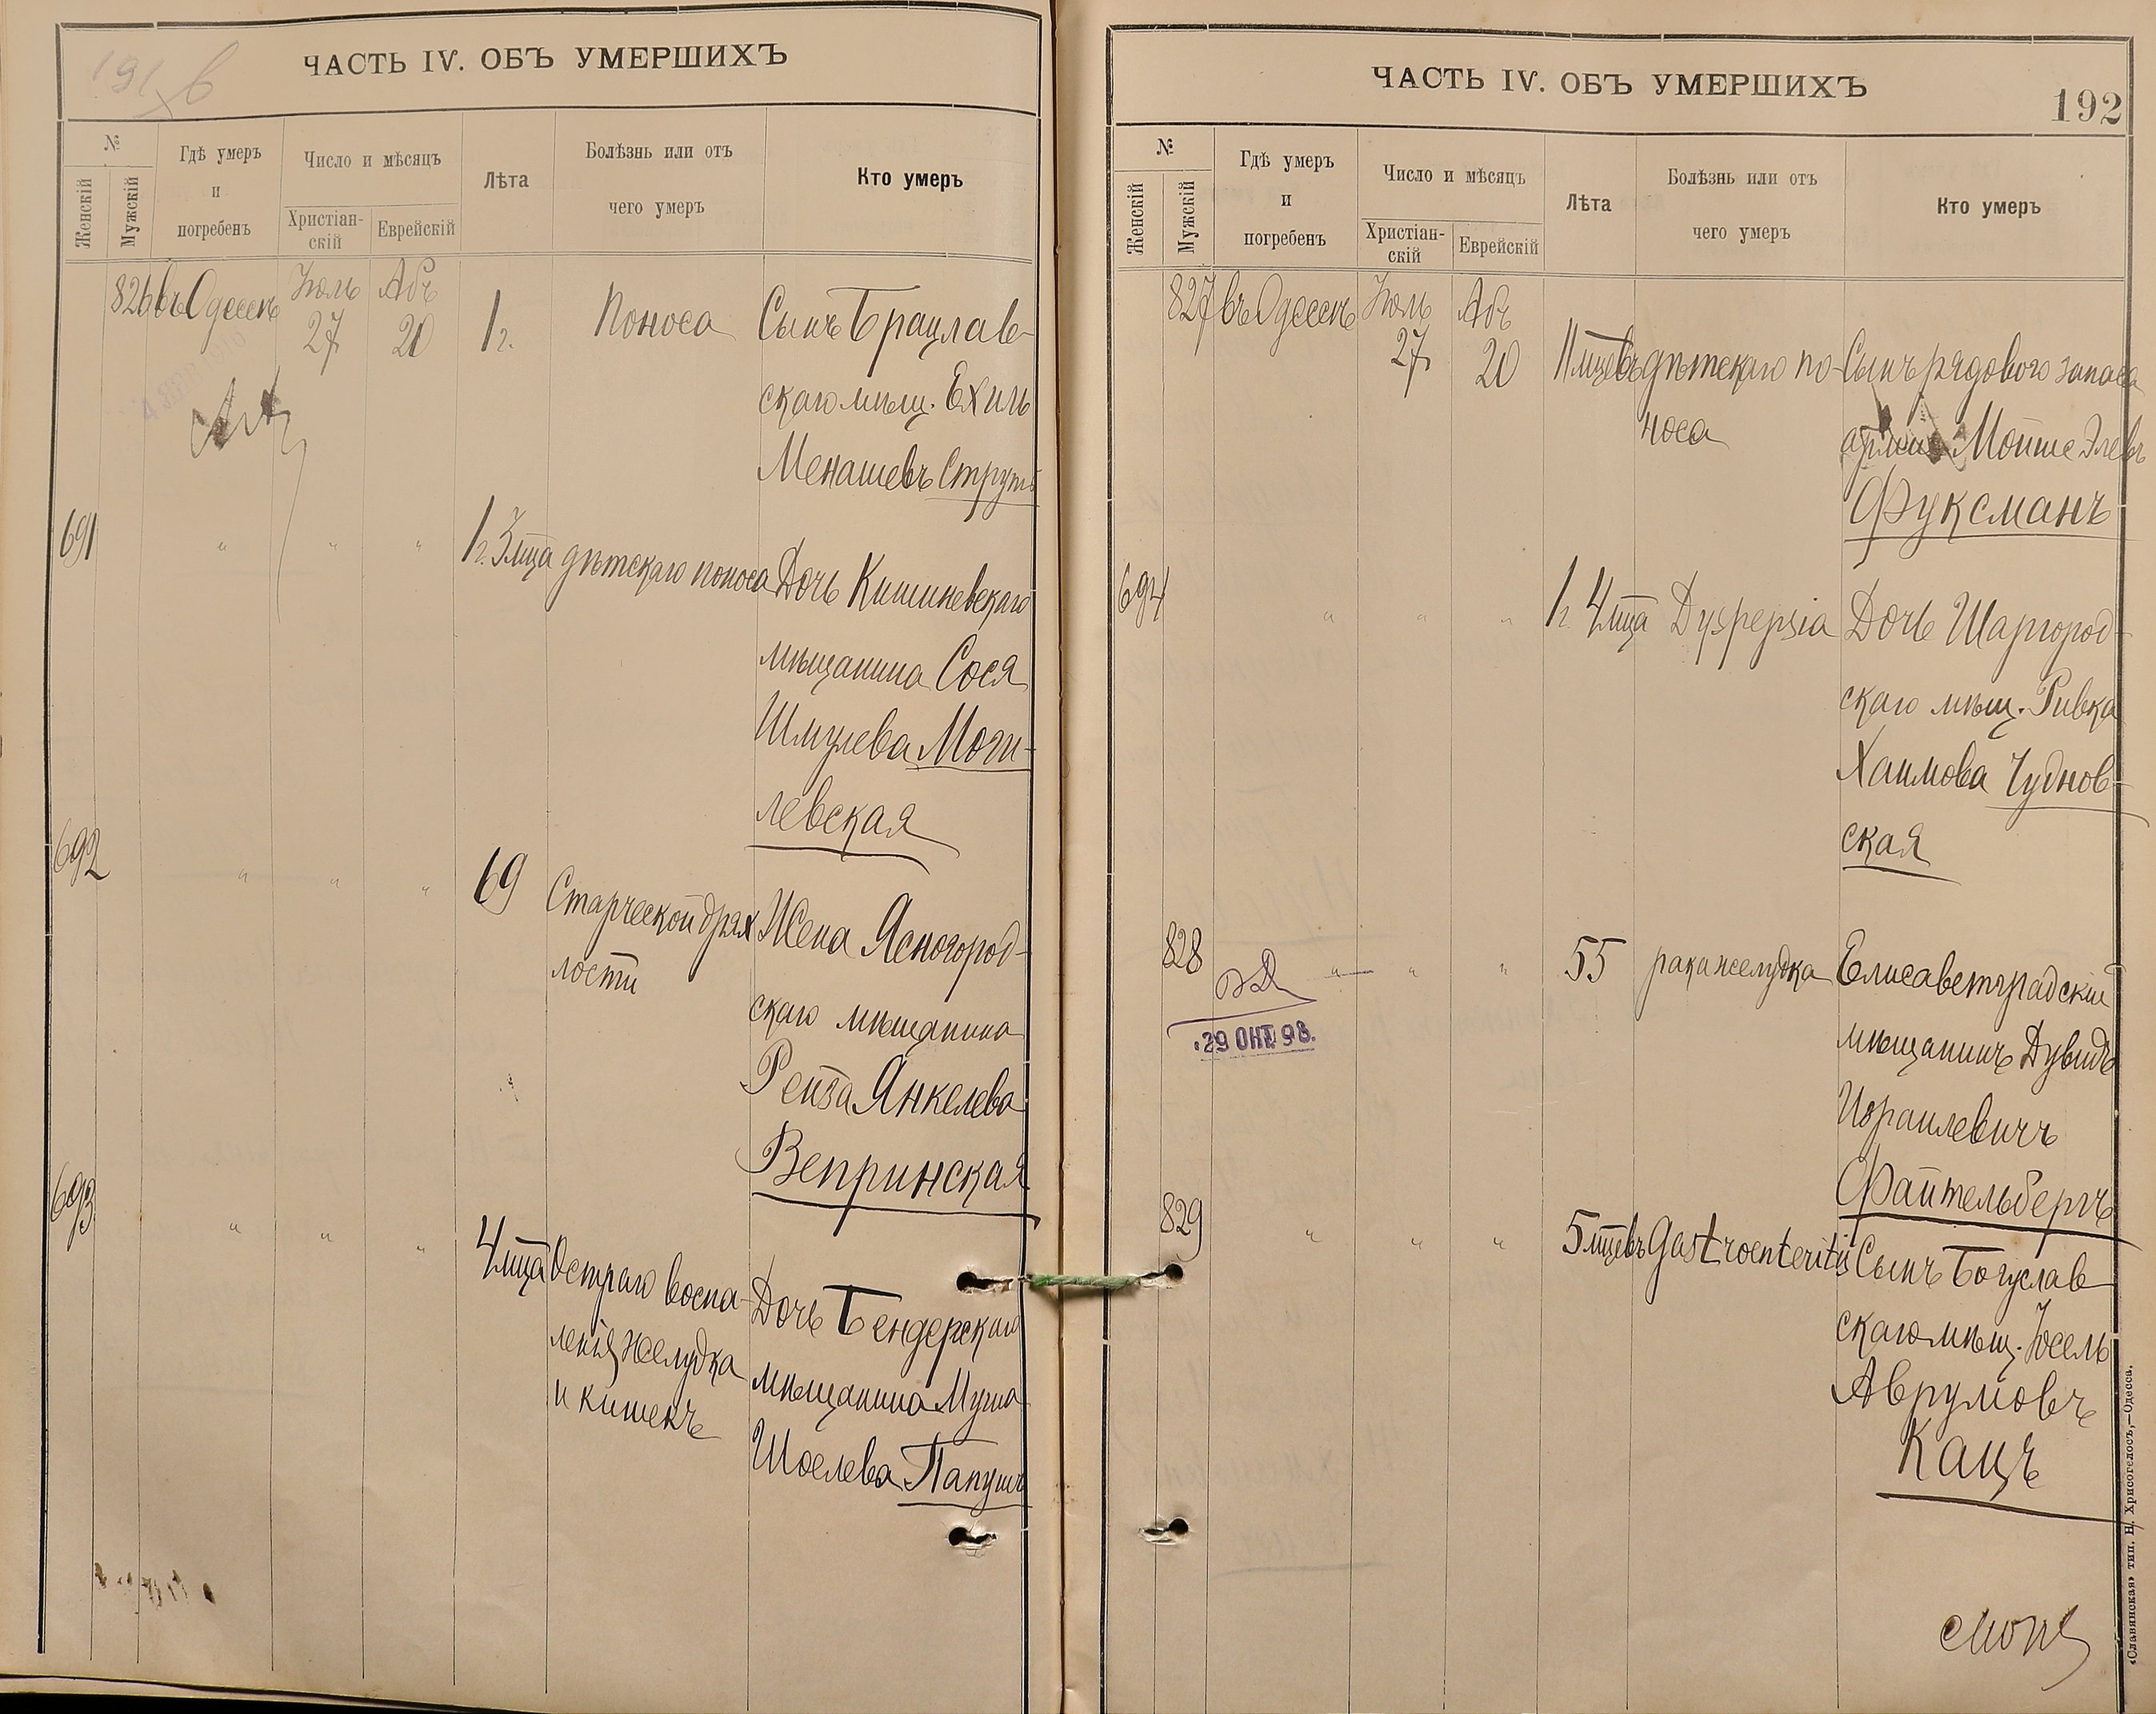 191 б
ЧАСТЬ IV. ОБЪ УМЕРШИХЪ
№
Женскій
Мужскій
Гдѣ умеръ
и
погребенъ
Число и мѣсяцъ
Христіан-
скій
Еврейскій
Лѣта
Болѣзнь или отъ
чего умеръ
Кто умеръ
826 въ Одессѣ Іюль 27 Абъ 20 1 г. Поноса Сынъ Брацлав-
скаго мѣщ. Ехиль
Менашевъ
691 " " " 1 г. 3 мца дѣтскаго поноса Дочь Кишиневскаго
мѣщанина Сося
Шмулева Моги-
левская
692 " " " 69 Старческой дрях Жена Ясногород-
лости
скаго мѣщанина
Рейза Янкелева
Вепринская
693 " " " 4 мца Остраго воспа- Дочь Бендерскаго
ленія желудка
мѣщанина
и кишекъ
Шоелева Папушъ
ЧАСТЬ IV. ОБЪ УМЕРШИХЪ
192
№
Женскій
Мужскій
Гдѣ умеръ
и
погребенъ
Число и мѣсяцъ
Христіан-
скій
Еврейскій
Лѣта
Болѣзнь или отъ
чего умеръ
Кто умеръ
827 въ Одессѣ Іюль 27 Абъ 20 11 мцевъ дѣтскаго по- Сынъ рядового запаса
носа
арміи Мойше Элевъ
Фуксманъ
694 " " " 1 г. 4 мца Dyspepsia Дочь Шаргород-
скаго мѣщ. Ривка
Хаимова Чуднов-
ская
828 " " " 55 рака желудка Елисаветградскій
29 ОКТ 98.
мѣщанинъ Дувидъ
Израилевичъ
Файтельбергъ
829 " " " 5 мцевъ Gastroenteritis Сынъ Богуслав
скаго мѣщ. Іосель
Аврумовъ
Кацъ
«Славянская» тип. Н. Хрисогелосъ,—Одесса.